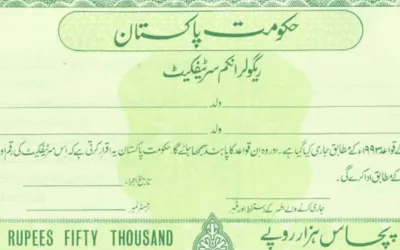 حکومت پاکستان
ریگولر انکم سرٹیفکیٹ
ولد
ولد
قواعد ۱۹۹۳ء کے مطابق جاری کیا گیا ہے۔ اور وہ ان قواعد کا پابند سمجھا جائے گا۔ حکومت پاکستان یہ اقرار کرتی ہے کہ اس سرٹیفکیٹ کی رقم اور
کے مطابق ادا کرے گی۔
تاریخ اجراء
جاری کرنے والے افسر کے دستخط اور مہر
رجسٹر نمبر
RUPEES FIFTY THOUSAND
پچاس ہزار روپے